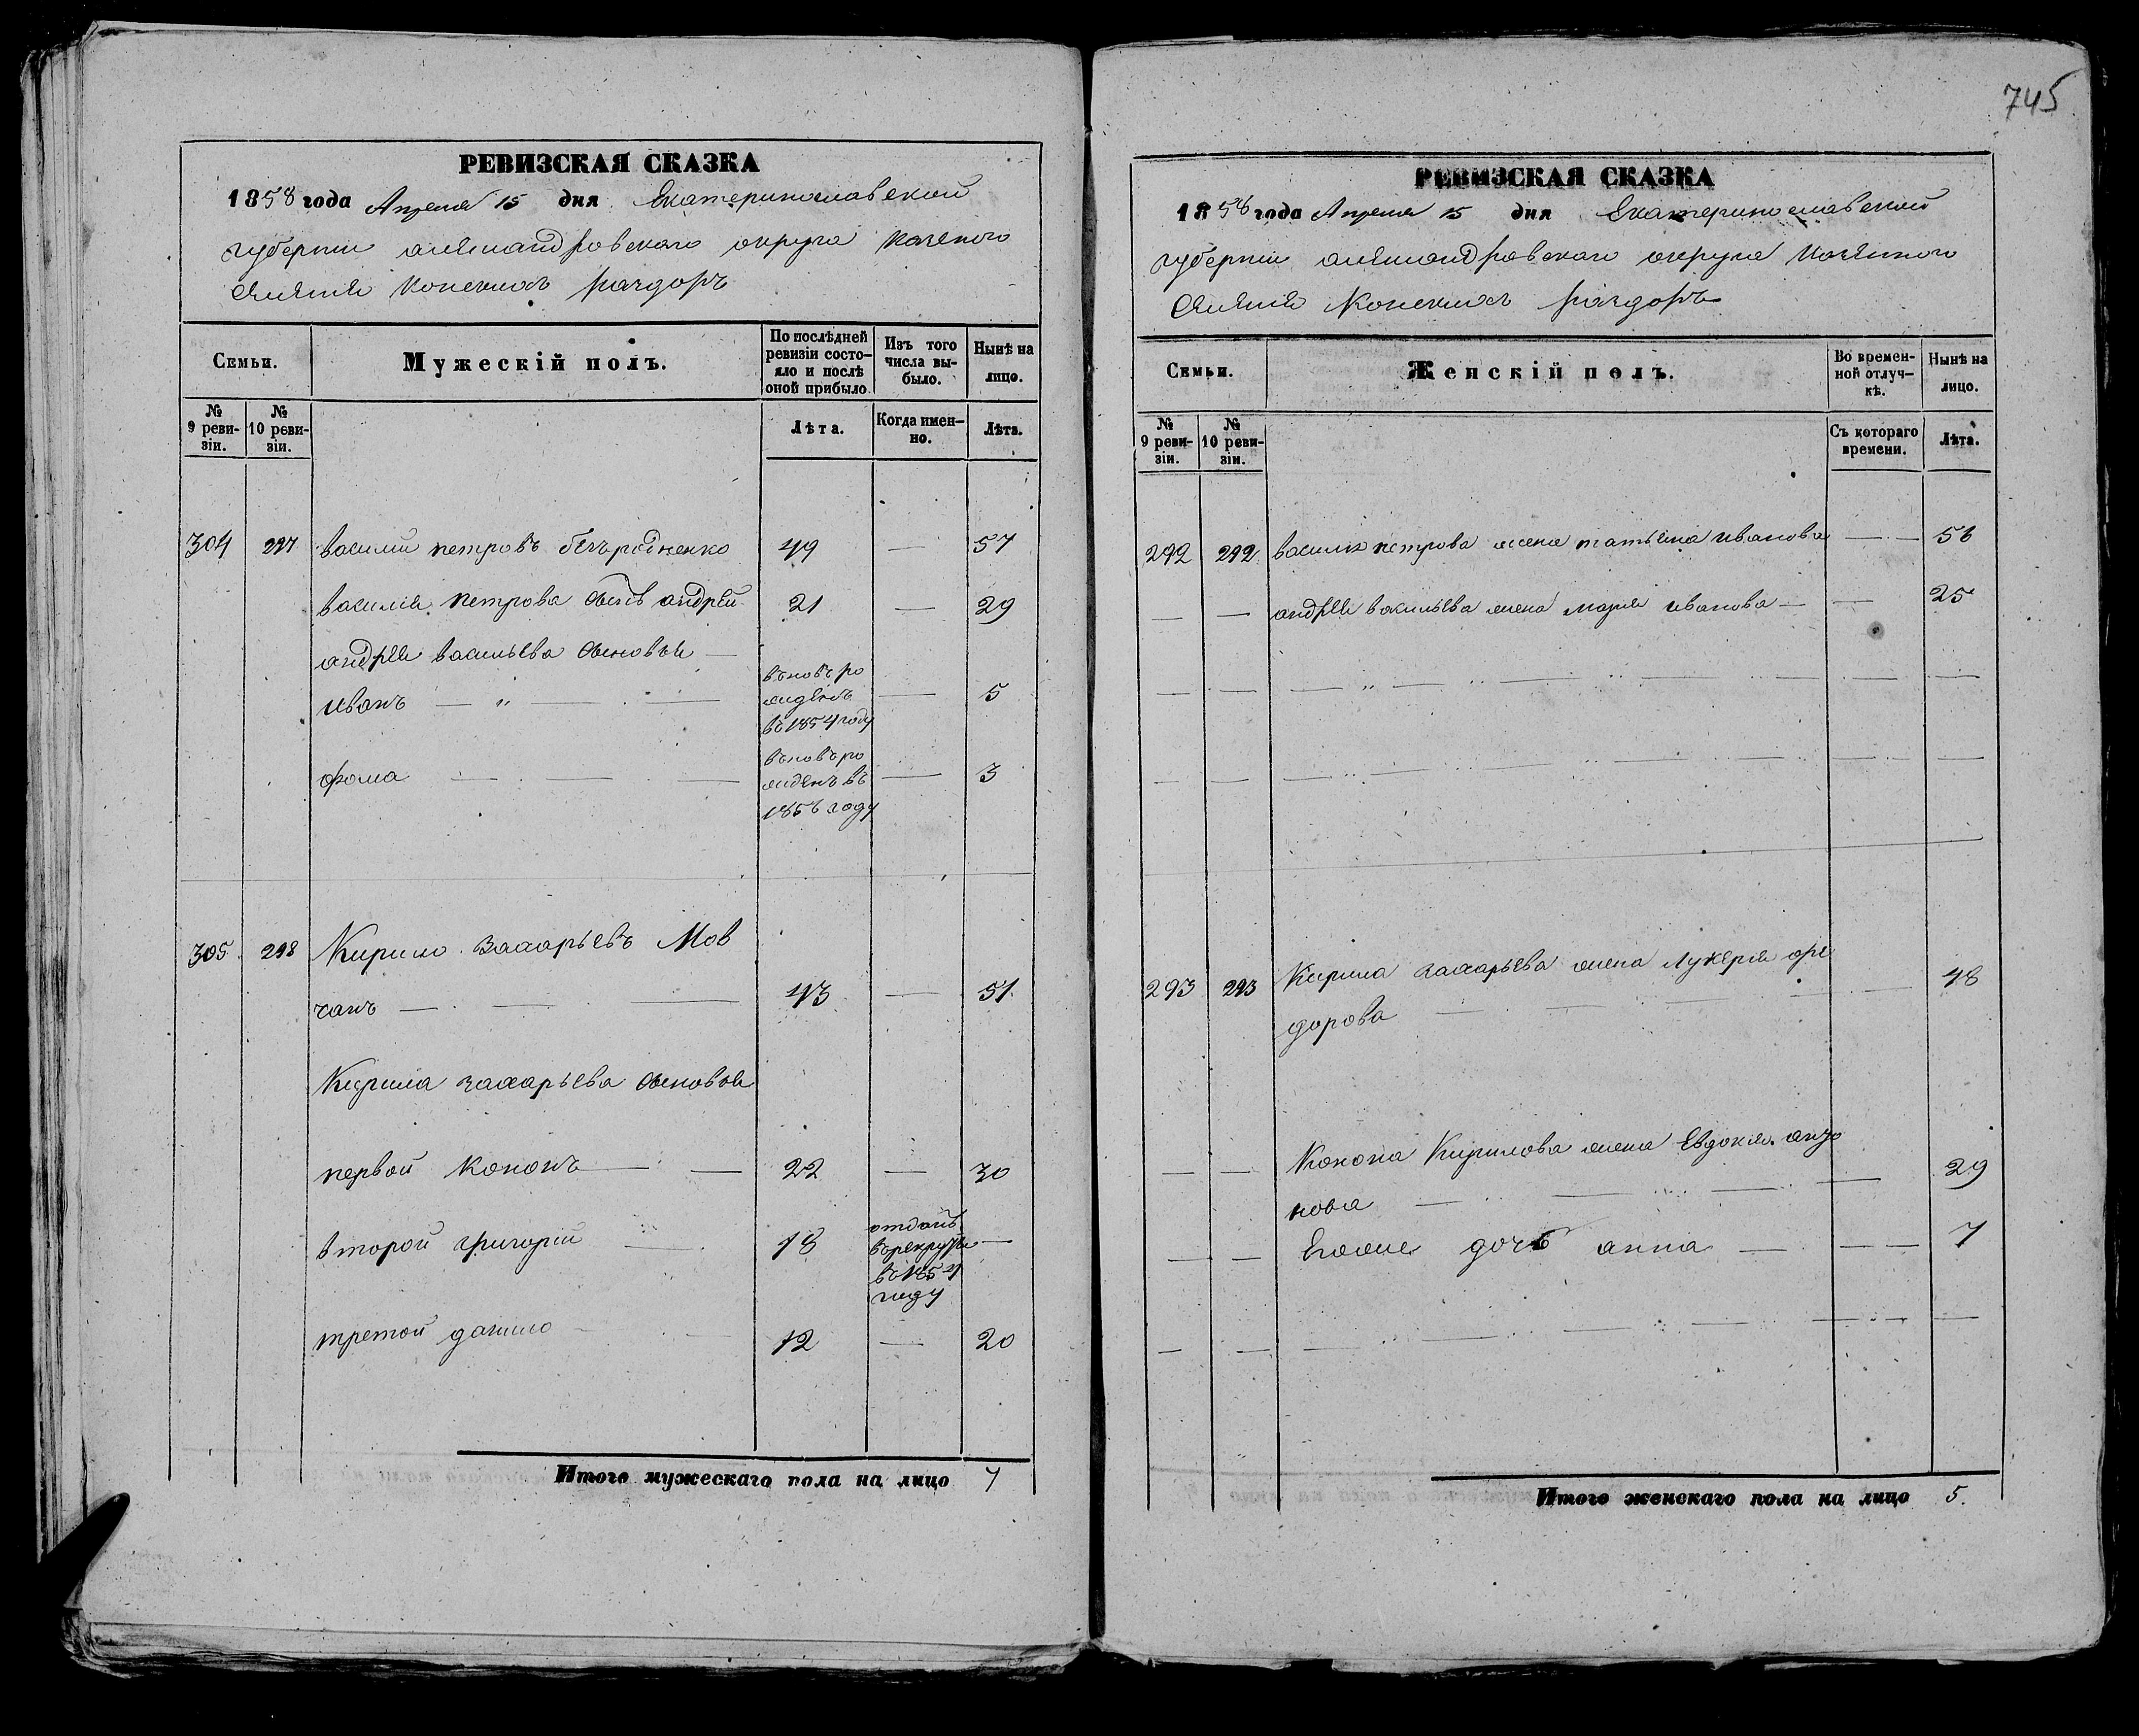 745
РЕВИЗСКАЯ СКАЗКА
1858 года Апреля 15 дня Екатеринославской
губернии александровскаго округа казеного
селения Конскихъ раздоръ
Семьи.
Мужескій полъ.
По послѣдней ревизіи состо-
яло и послѣ оной прибыло.
Изъ того числа вы-
было.
Нынѣ на лицо.
№ 9 реви-
зіи.
№ 10 реви-
зіи.
Лѣта.
Когда имен-
но.
Лѣта.
304 297 василий петровъ безъродненко 49 — 57
василия петрова сынъ андрей 21 — 29
андрея васильева сыновья —
иванъ — „ — — въновъ ро
жденъ
въ 1854 году — 5
фома — — — въновъ ро
жденъ въ
1856 году — 3
305 298 Кирило захарьевъ Мов
чанъ — — — 43 — 51
Кирила захарьева сыновья
первой Кононъ — — 22 — 30
второй григорий — 18 отданъ
въ рекруты
въ 1854
году —
третой данило — — 12 — 20
Итого мужескаго пола на лицо 7
РЕВИЗСКАЯ СКАЗКА
1858 года Апреля 15 дня Екатеринославской
губернии александровскаго округа казенного
селения Конскихъ раздоръ
Семьи.
Женскій полъ.
Во времен-
ной отлуч-
кѣ.
Нынѣ на лицо.
№ 9 реви-
зіи.
№ 10 реви-
зіи.
Съ котораго времени.
Лѣта.
292 292 василия петрова жена татьяна иванова — — 56
— — андрея васильева жена мария иванова — — 25
293 293 Кирила захарьева жена лукерия фе
дорова — — — 48
— — Конона Кирилова жена Евдокия
нова — — — 29
— — Егоже дочь анна — — — 7
Итого женскаго пола на лицо 5.